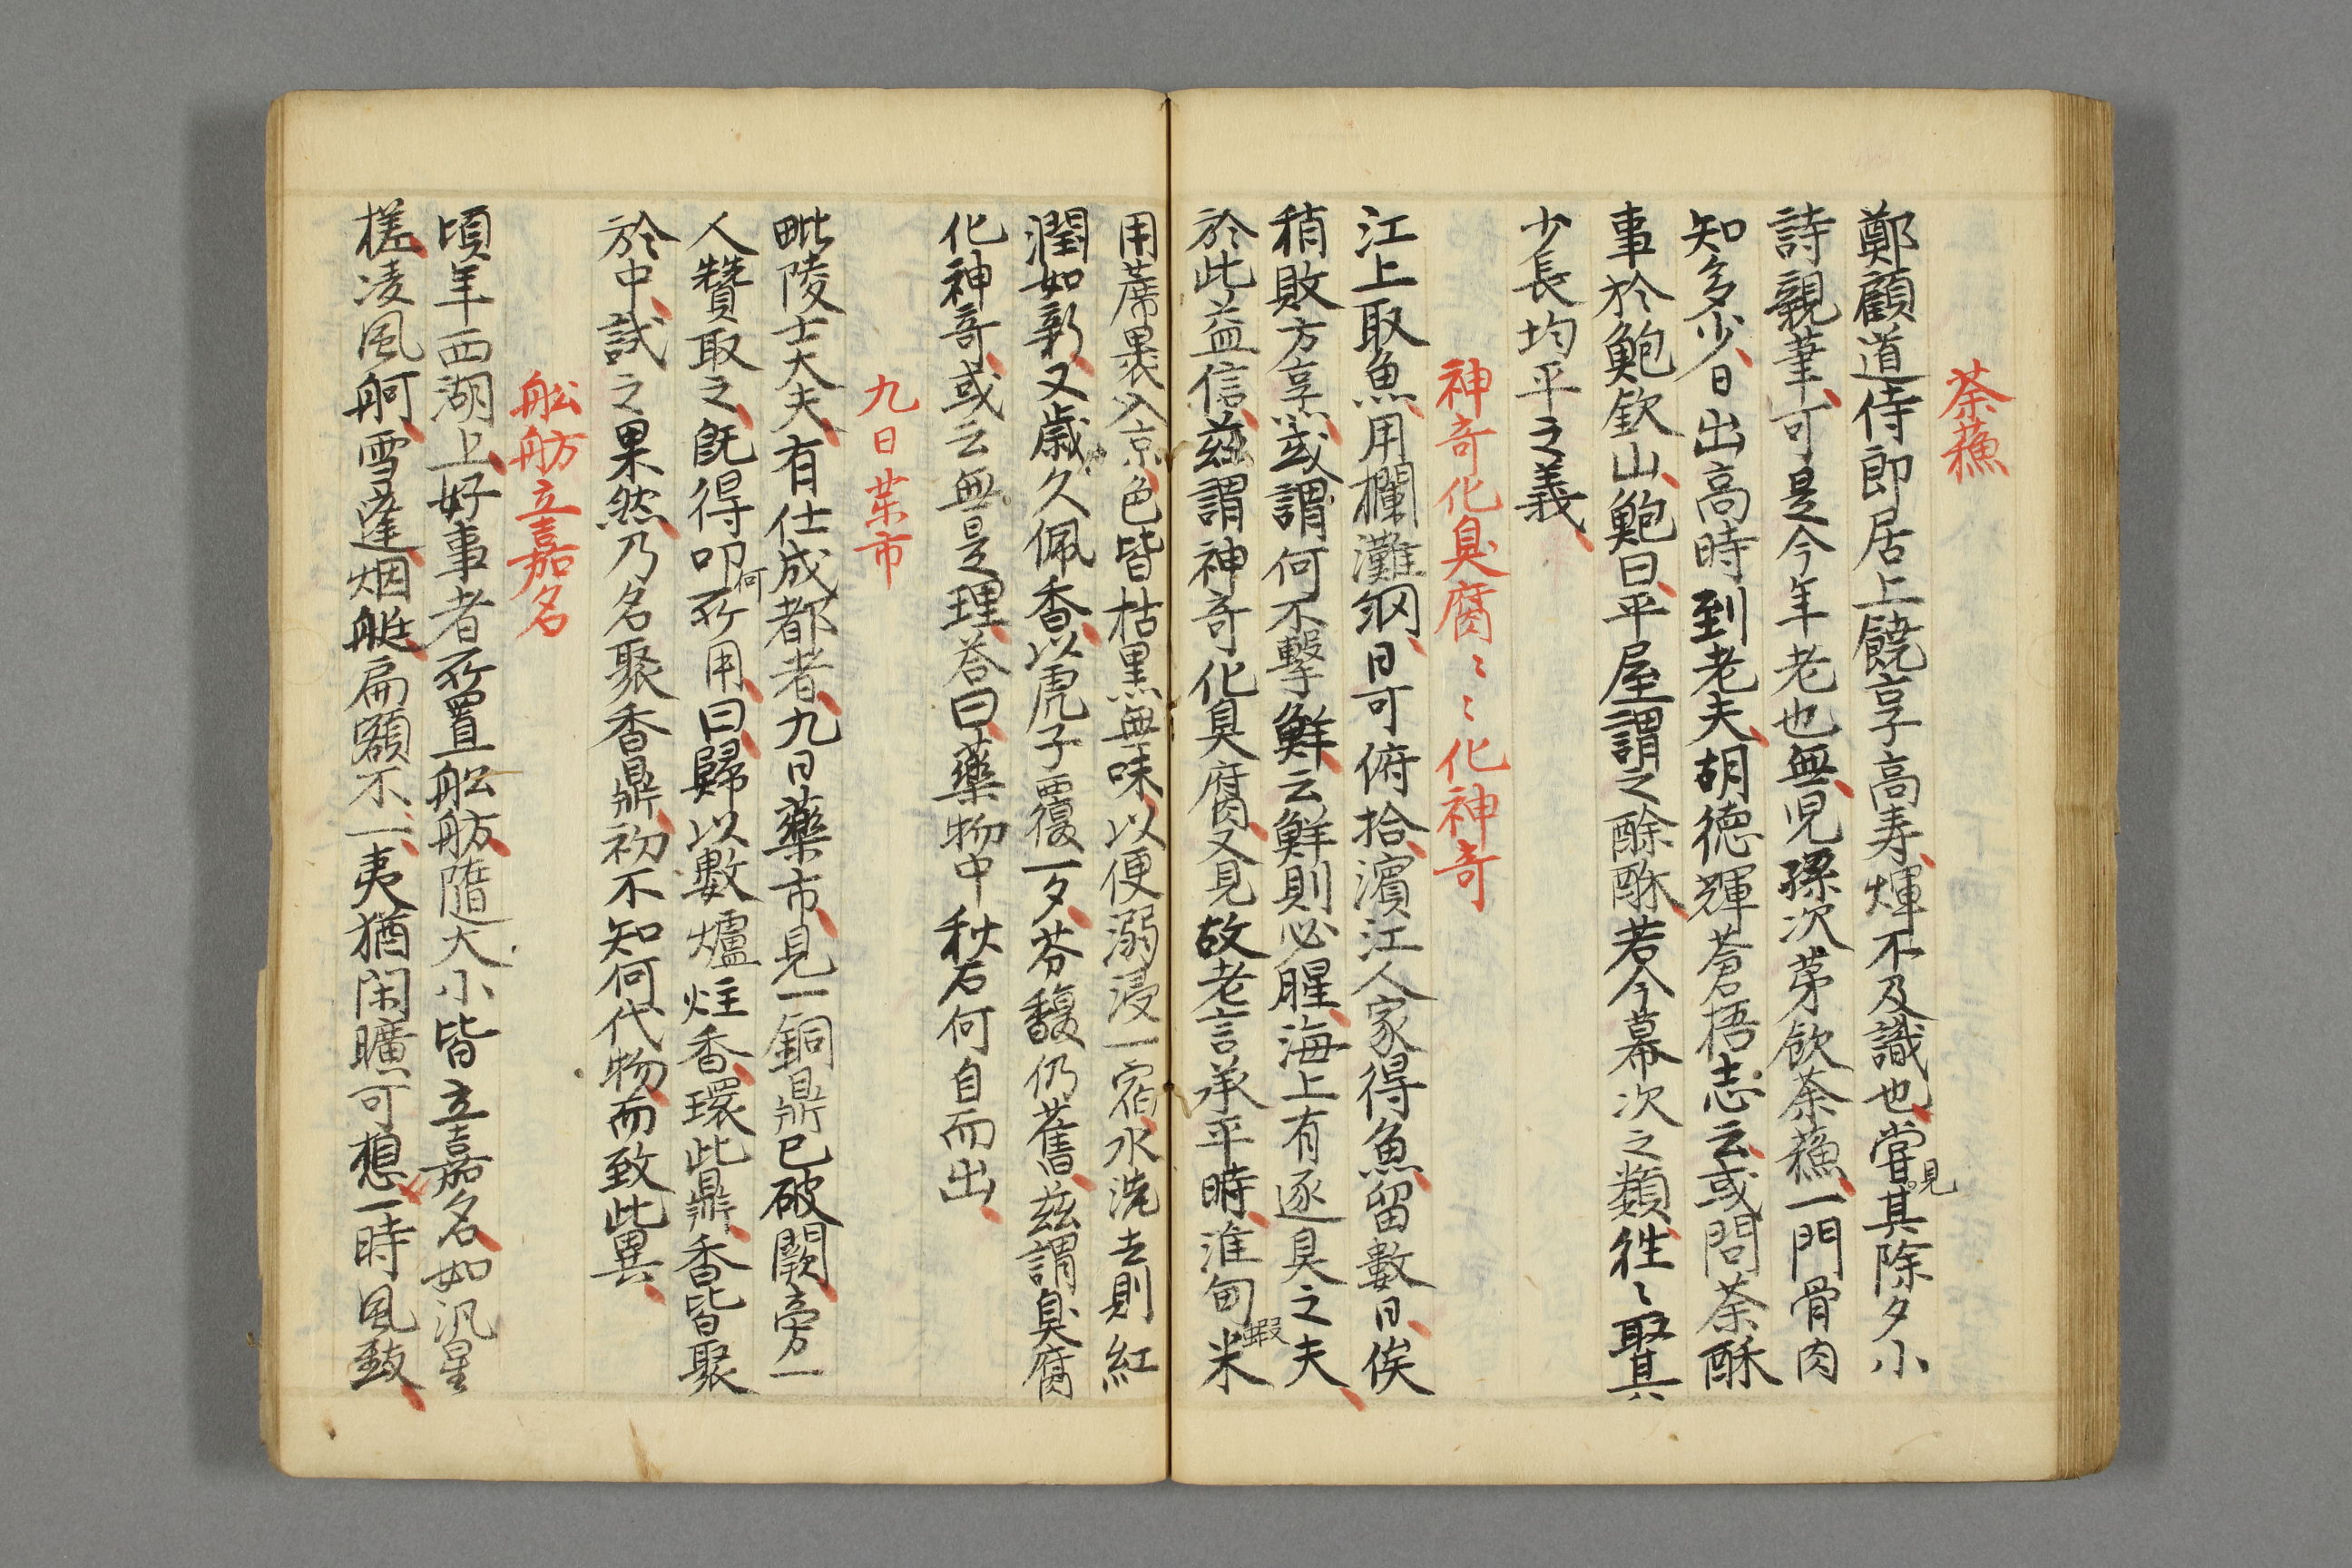 荼蘓
鄭顧道侍郎居上饒享高寿煇不及識也嘗見其除夕小
詩親筆可是今年老也無児孫次苐飲荼蘓一門骨肉
知多少日出高時到老夫胡徳輝蒼梧志云或問荼酥
事於鮑欽山鮑曰平屋謂之酴酥若今幕次之類徃〻聚其
少長均平之義
神奇化臭腐〻〻化神奇
江上取魚用欄灘網日可俯拾濱江人家得魚留數日俟
稍敗方享或謂何不擊鮮云鮮則必腥海上有逐臭之夫
於此益信兹謂神奇化臭腐又見故老言承平時淮甸蝦米
用蓆裹入京色皆枯黒無味以便溺浸一宿水洗去則紅
潤如新又歳久佩香以虎子覆一夕芬馥仍舊兹謂臭腐
化神奇或云無是理荅曰藥物中秋石何自而出
九日茉市
毗陵士大夫有仕成都者九日藥市見一銅鼎已破闕旁一
人賛取之既得叩何所用曰歸以數爐炷香環此鼎香皆聚
於中試之果然乃名聚香鼎初不知何代物而致此異
舩舫立嘉名
頃年西湖上好事者所置舩舫隨大小皆立嘉名如汎星
槎凌風舸雪蓬烟艇扁額不一夷猶閑曠可想一時風致